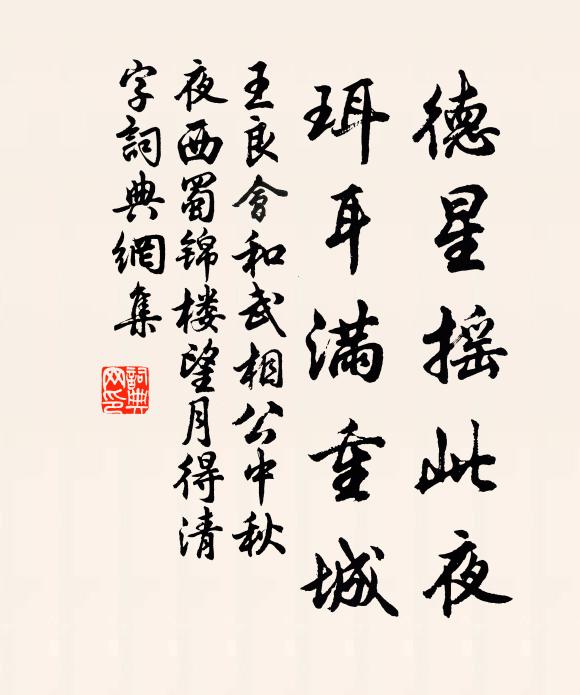 德星搖此夜
珥耳滿重城
王良會和武相公中秋
夜西蜀錦樓望月得清
字詞典網集
詞典
网印